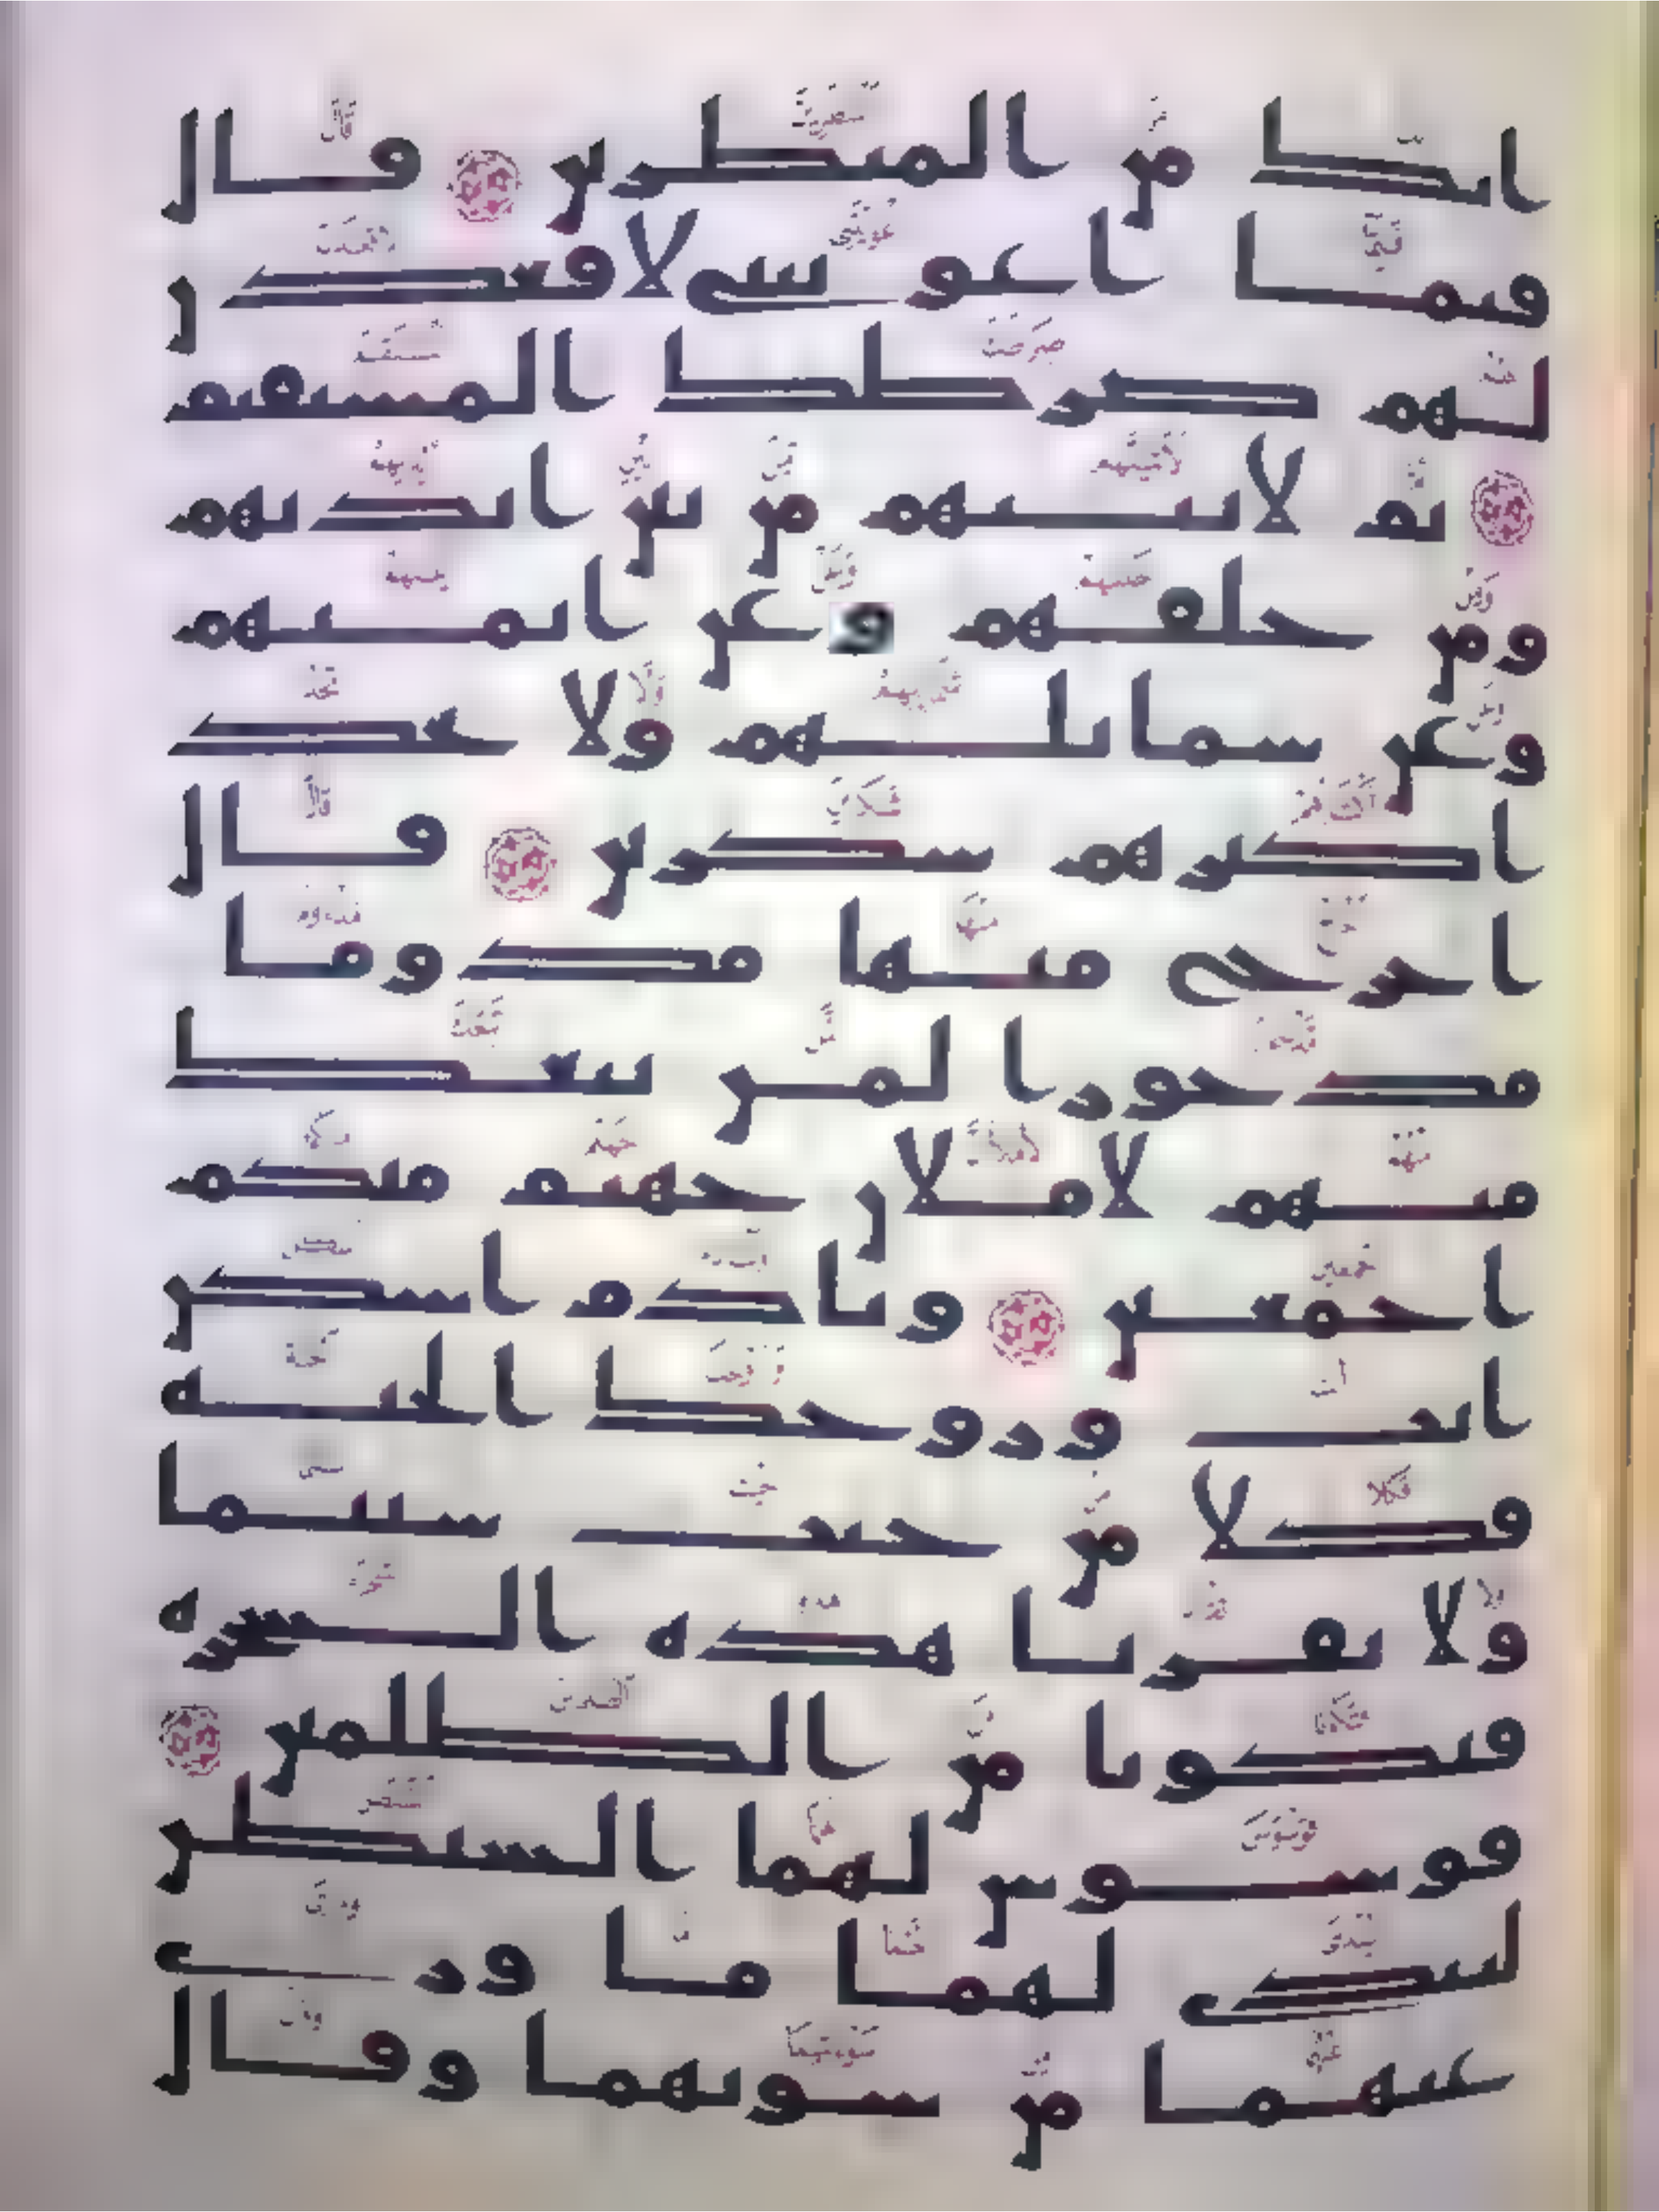 انك من المنظرين قال
فبما اغويتني لاقعدن
لهم صرطك المستقيم
ثم لاتينهم من بين ايديهم
ومن خلفهم وعن ايمنهم
وعن شمايلهم ولا تجد
اكثرهم شكرين قال
اخرج منها مذوما
مدحورا لمن تبعك
منهم لاملان جهنم منكم
اجمعين ويادم اسكن
انت وزوجك الجنه
فكلا من حيث شيتما
ولا تقربا هذه الشجره
فتكونا من الظلمين
فوسوس لهما الشيطن
ليبدي لهما ما وري
عنهما من سوتهما وقال